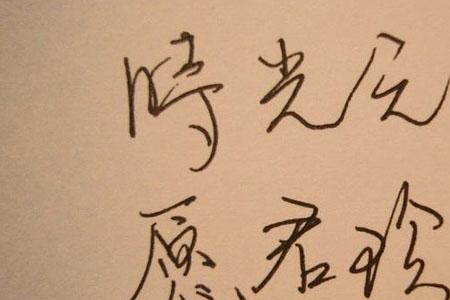 時光
愿君珍